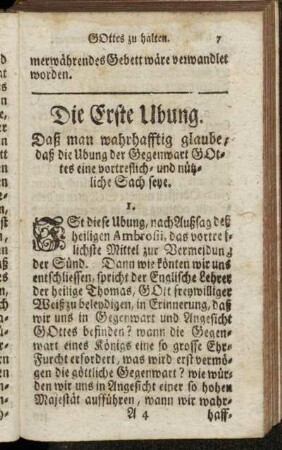 GOttes zu halten. 7
merwährendes Gebett wäre verwandlet
worden.
Die Erste Ubung.
Daß man wahrhafftig glaube,
daß die Ubung der Gegenwart GOt-
tes eine vortreflich- und nütz-
liche Sach seye.
1.
ISt diese Ubung, nach Außsag deß
heiligen Ambrosii, das vortref-
lichste Mittel zur Vermeidung
der Sünd. Dann wie könten wir uns
entschliessen, spricht der Englische Lehrer
der heilige Thomas, GOtt freywilliger
Weiß zu beleydigen, in Erinnerung, daß
wir uns in Gegenwart und Angesicht
GOttes befinden? wann die Gegen-
wart eines Königs eine so grosse Ehr-
Furcht erfordert, was wird erst vermö-
gen die göttliche Gegenwart? wie wür-
den wir uns in Angesicht einer so hohen
Majestät aufführen, wann wir wahr-
A 4 haff-